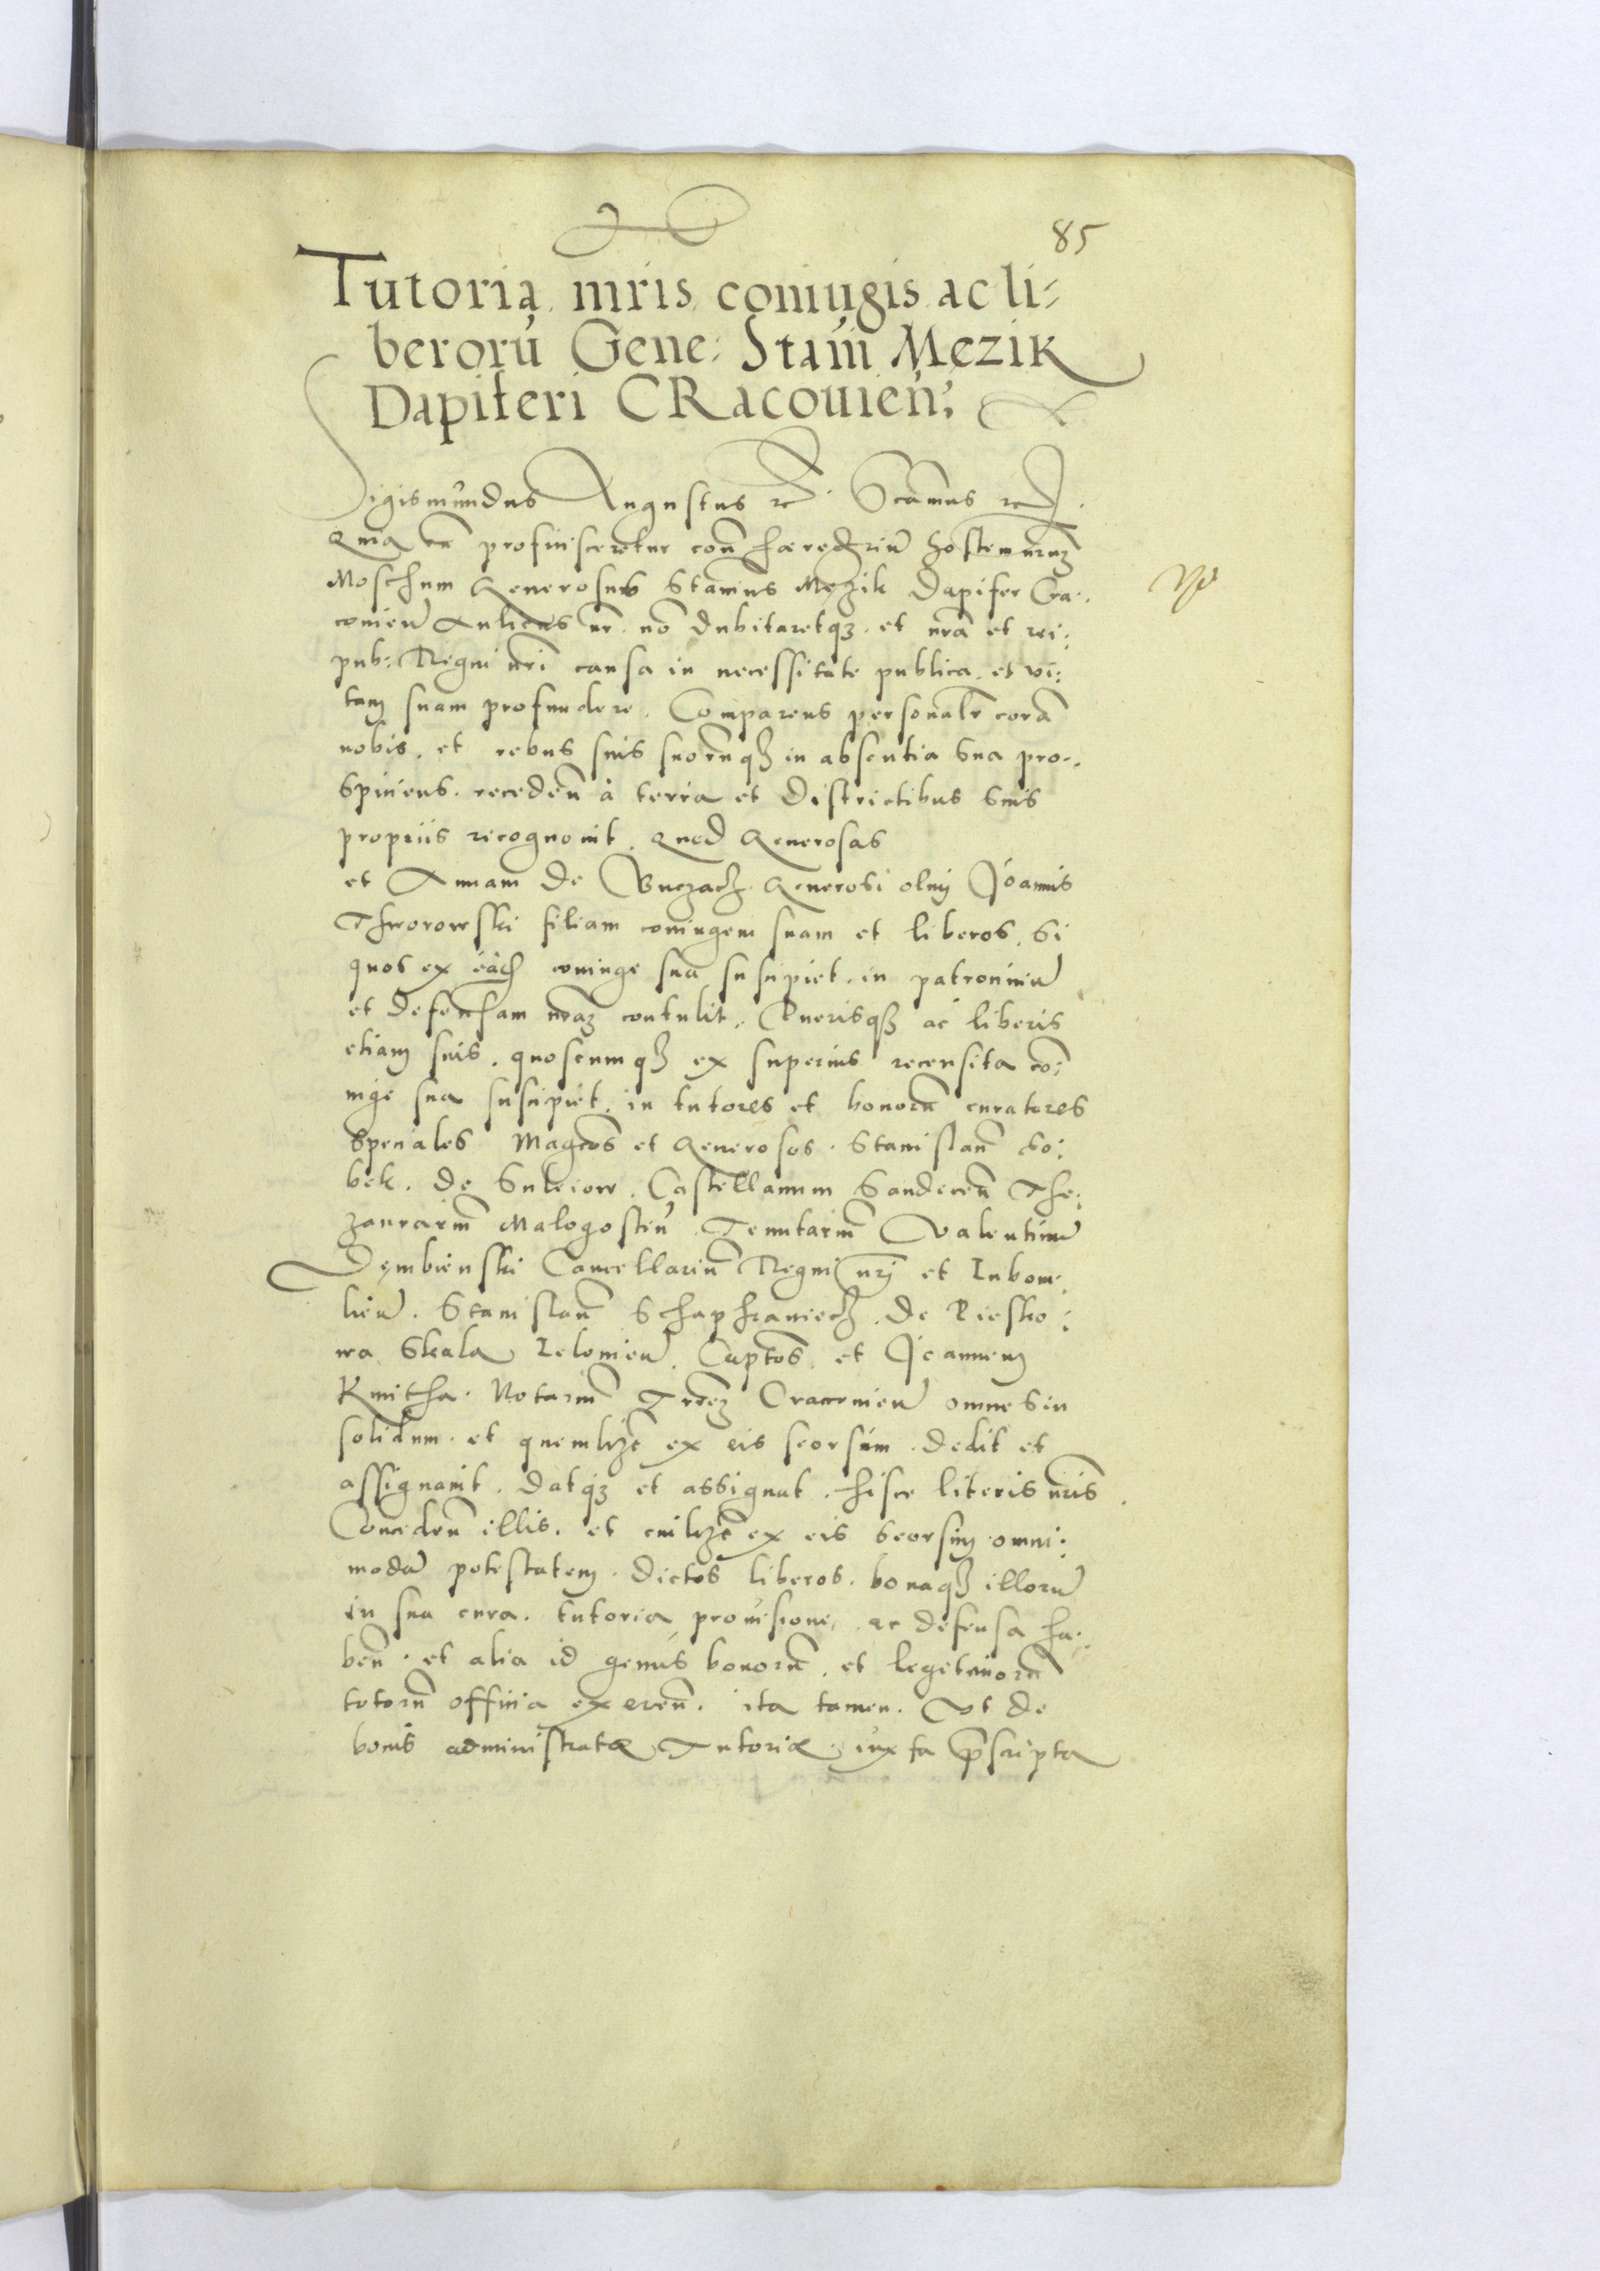 85
Tutoria mris coniugis ac li⸗
berorũ Gene: Stani Męzik
Dapiferi CRacouień:
Sigismundus Augustus rc̃. Sctamus rc̃.
Quia cũ proficisceretur con̄ hæreditariũ hostem nrum
Moschum Generosus Stanius Mezik Dapifer Cra:
couień Aulicus nr̃. nõ dubitaretqz. et nrã et rei:
pub: Regni nri causa in necessitate publica. et vi:
tam suam profundere. Comparens personalr̃ corã
nobis. et rebus suis suorũqz in absentia sua pro:
spiciens. recedeñ à terris et districtibus suis
propriis recognouit. quod Generosas
et Annam de Buczacz. Generosi olim Joannis
Thworowski filiam coniugem suam et liberos. si
quos ex eadẽ coniuge sua suscipiet. in patrociniũ
et defensam nrãm contulit. Puerisqz ac liberis
etiam suis. quoscumqz ex superius recensita co:
niuge sua suscipiet. in tutores et bonorũ curatores
speciales Magcos et Generosos. Stanislaũ So:
bek. de Suleiow. Castellanum Sandecen̄ The:
zaurariũ Malogosteñ. Tenutariũ Valentinũ
Dęmbienski Cancellariũ Regni nrj et Inbow:
lień. Stanislaũ Schaphraniecz. de Piesko:
wa Skala Lelouień. Captos. et Joannem
Kmitha. Notariũ Trrẽ Cracouień omnes in
solidum. et quemlibet ex eis seorsim. dedit et
assignauit. datqz et assignat. hisce literis nris.
Concedeñ illis. et cuilibet ex eis seorsim omni:
modã potestatem. dictos liberos. bonaqz illorũ
in sua cura. tutoria prouisione. ac defensa ha:
beñ. et alia id genus bonorũ. et legitimorũ
tutorũ officia exerceñ. ita tamen. Ut de
bonis administratæ Tutoriæ iuxta præscripta